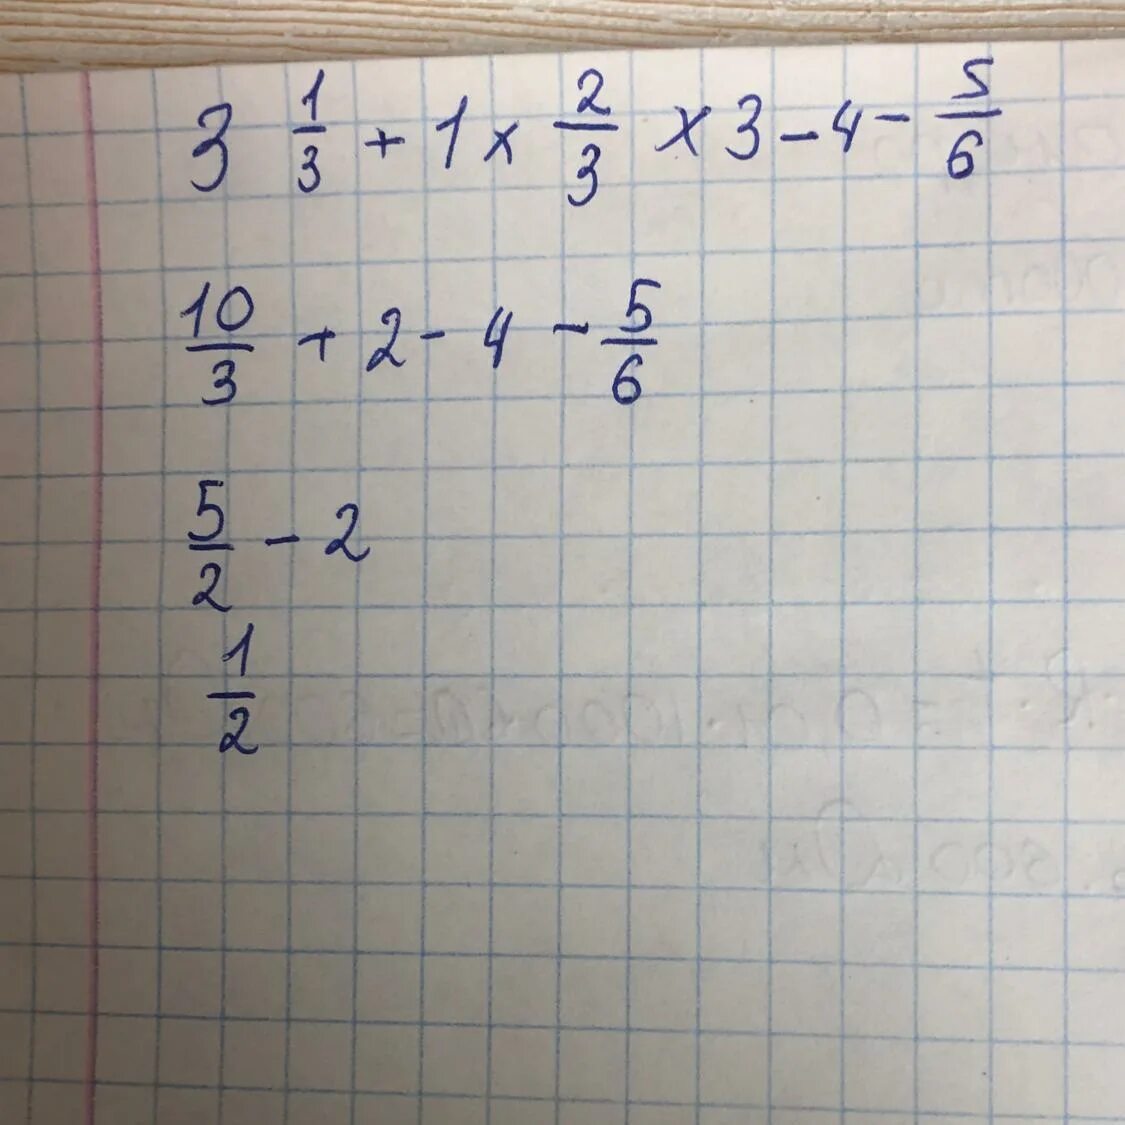 3 1/3 + 1 × 2/3 × 3 - 4 - 5/6
10/3 + 2 - 4 - 5/6
5/2 - 2
1/2